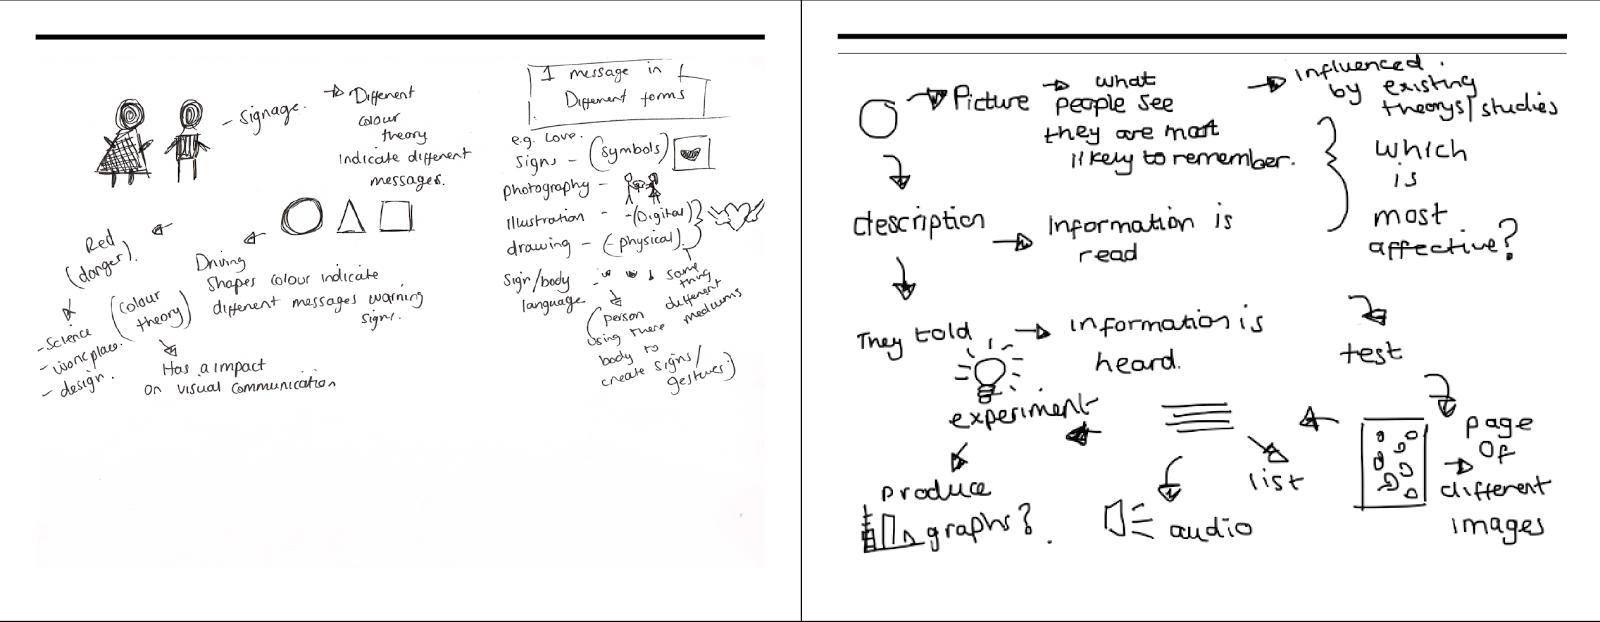 - Signage.
→ Different
colour
theory
indicate different
messages.
Red
(danger).
- Science
- workplace.
- design.
(Colour
theory)
Has a impact
on visual communication
Driving
Shapes colour indicate
different messages warning
signs.
1 message in
Different forms
e.g. Love.
Signs - (symbols)
photography -
Illustration - -(Digital)
drawing - (-physical).
Sign/body
language -
same
thing
different
mediums
(person
using there
body to
create signs/
gestures)
Picture → what
people see
they are most
likely to remember.
→ influenced
by existing
theorys/studies
which
is
most
affective?
description → Information is
read
They told → information is
heard.
test
page
of
different
images
list
audio
experiment
produce
graphs?